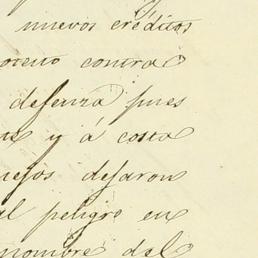 nuevos créditos
contra
defensa pues
y á costa
dejaron
al peligro en
nombre del